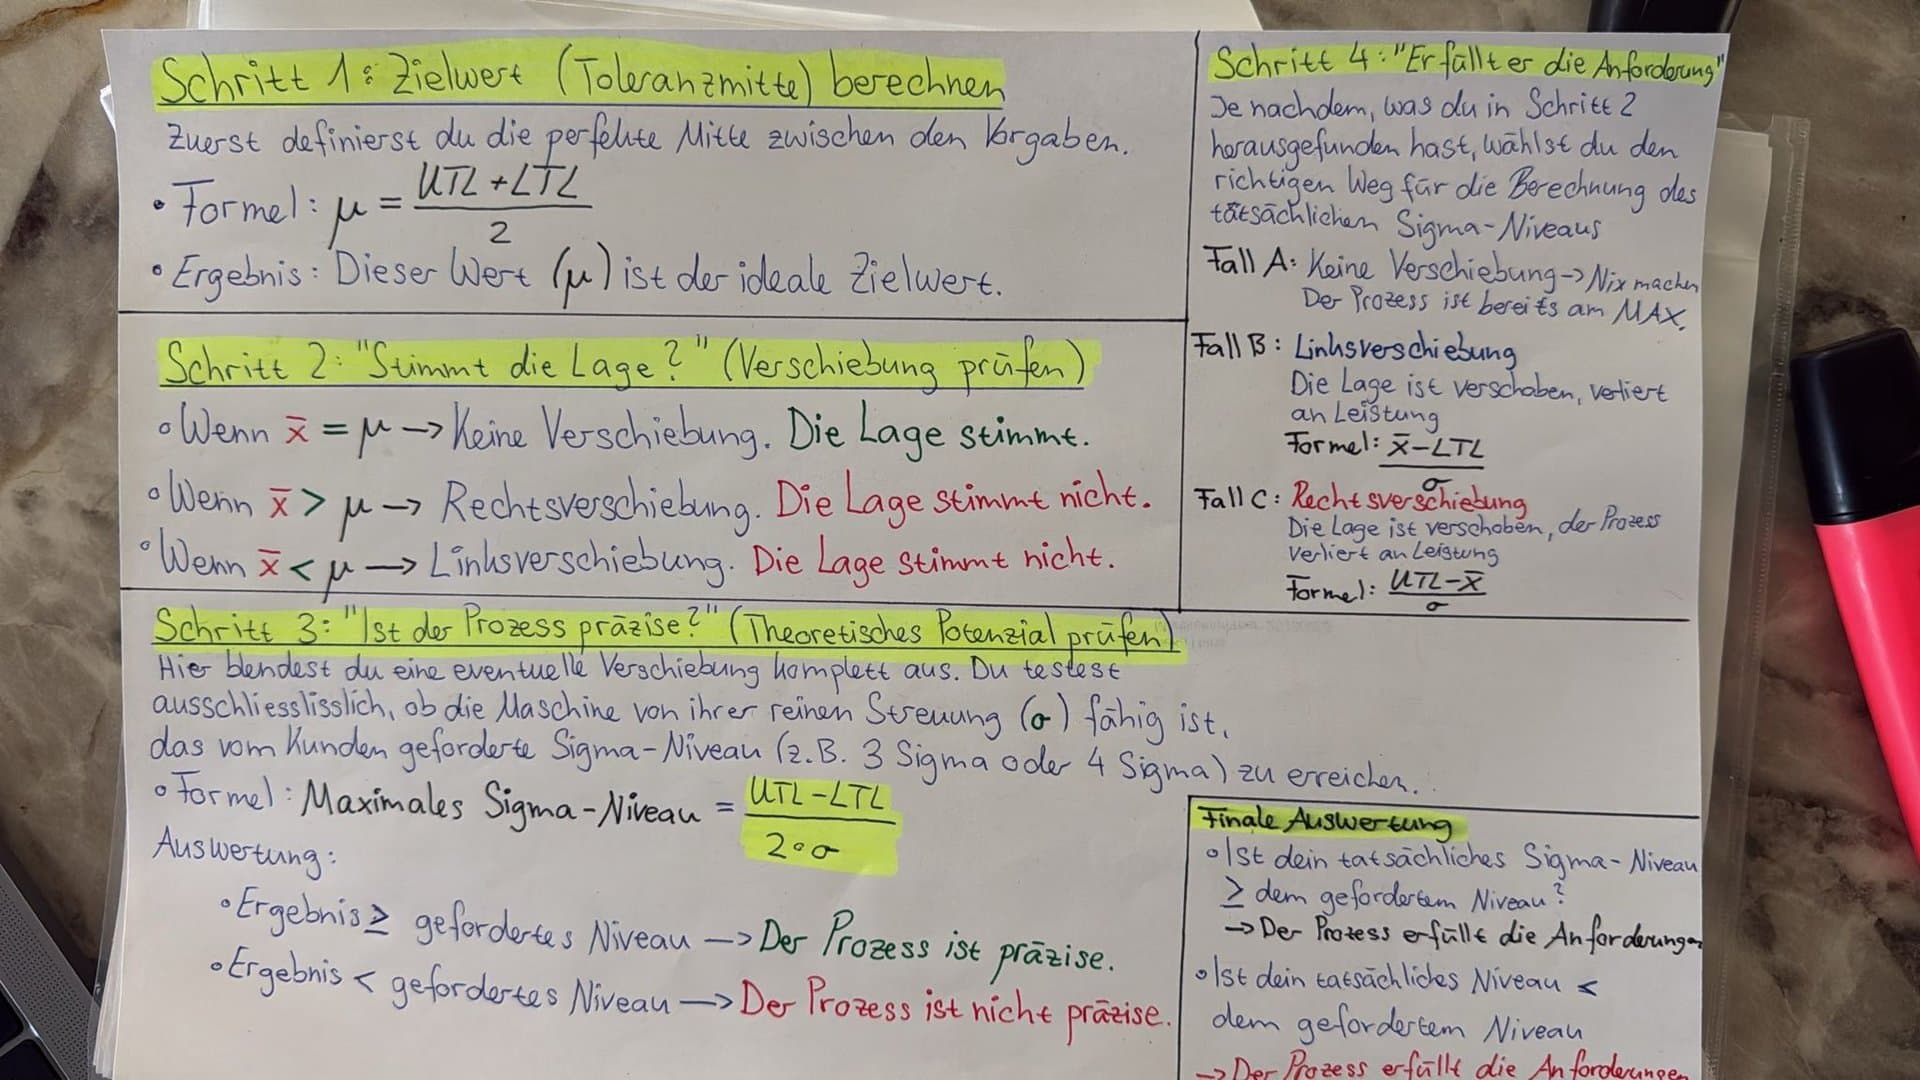 Schritt 1: Zielwert (Toleranzmitte) berechnen
Zuerst definierst du die perfekte Mitte zwischen den Vorgaben.
• Formel: μ = (UTL + LTL) / 2
• Ergebnis: Dieser Wert (μ) ist der ideale Zielwert.
Schritt 2: "Stimmt die Lage?" (Verschiebung prüfen)
• Wenn x̄ = μ → Keine Verschiebung. Die Lage stimmt.
• Wenn x̄ > μ → Rechtsverschiebung. Die Lage stimmt nicht.
• Wenn x̄ < μ → Linksverschiebung. Die Lage stimmt nicht.
Schritt 3: "Ist der Prozess präzise?" (Theoretisches Potenzial prüfen)
Hier blendest du eine eventuelle Verschiebung komplett aus. Du testest
ausschliesslisslich, ob die Maschine von ihrer reinen Streuung (σ) fähig ist,
das vom Kunden geforderte Sigma-Niveau (z.B. 3 Sigma oder 4 Sigma) zu erreichen.
• Formel: Maximales Sigma-Niveau = (UTL - LTL) / (2 • σ)
Auswertung:
• Ergebnis ≥ gefordertes Niveau → Der Prozess ist präzise.
• Ergebnis < gefordertes Niveau → Der Prozess ist nicht präzise.
Schritt 4: "Erfüllt er die Anforderung"
Je nachdem, was du in Schritt 2
herausgefunden hast, wählst du den
richtigen Weg für die Berechnung des
tatsächlichen Sigma-Niveaus
Fall A: Keine Verschiebung → Nix machen
Der Prozess ist bereits am MAX.
Fall B: Linksverschiebung
Die Lage ist verschoben, verliert
an Leistung
Formel: (x̄ - LTL) / σ
Fall C: Rechtsverschiebung
Die Lage ist verschoben, der Prozess
verliert an Leistung
Formel: (UTL - x̄) / σ
Finale Auswertung
• Ist dein tatsächliches Sigma-Niveau
≥ dem gefordertem Niveau?
→ Der Prozess erfüllt die Anforderungen
• Ist dein tatsächliches Niveau <
dem gefordertem Niveau
→ Der Prozess erfüllt die Anforderungen